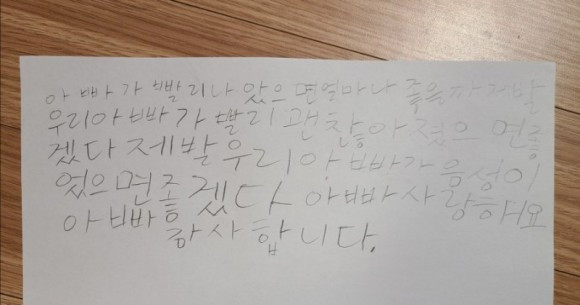 아빠가빨리나았으면얼마나 좋을까제발
우리아빠가빨리괜찮아졌으면좋
겠다제발우리아빠가음성이
었으면좋겠다 아빠사랑하해요
아빠
감사합니다.